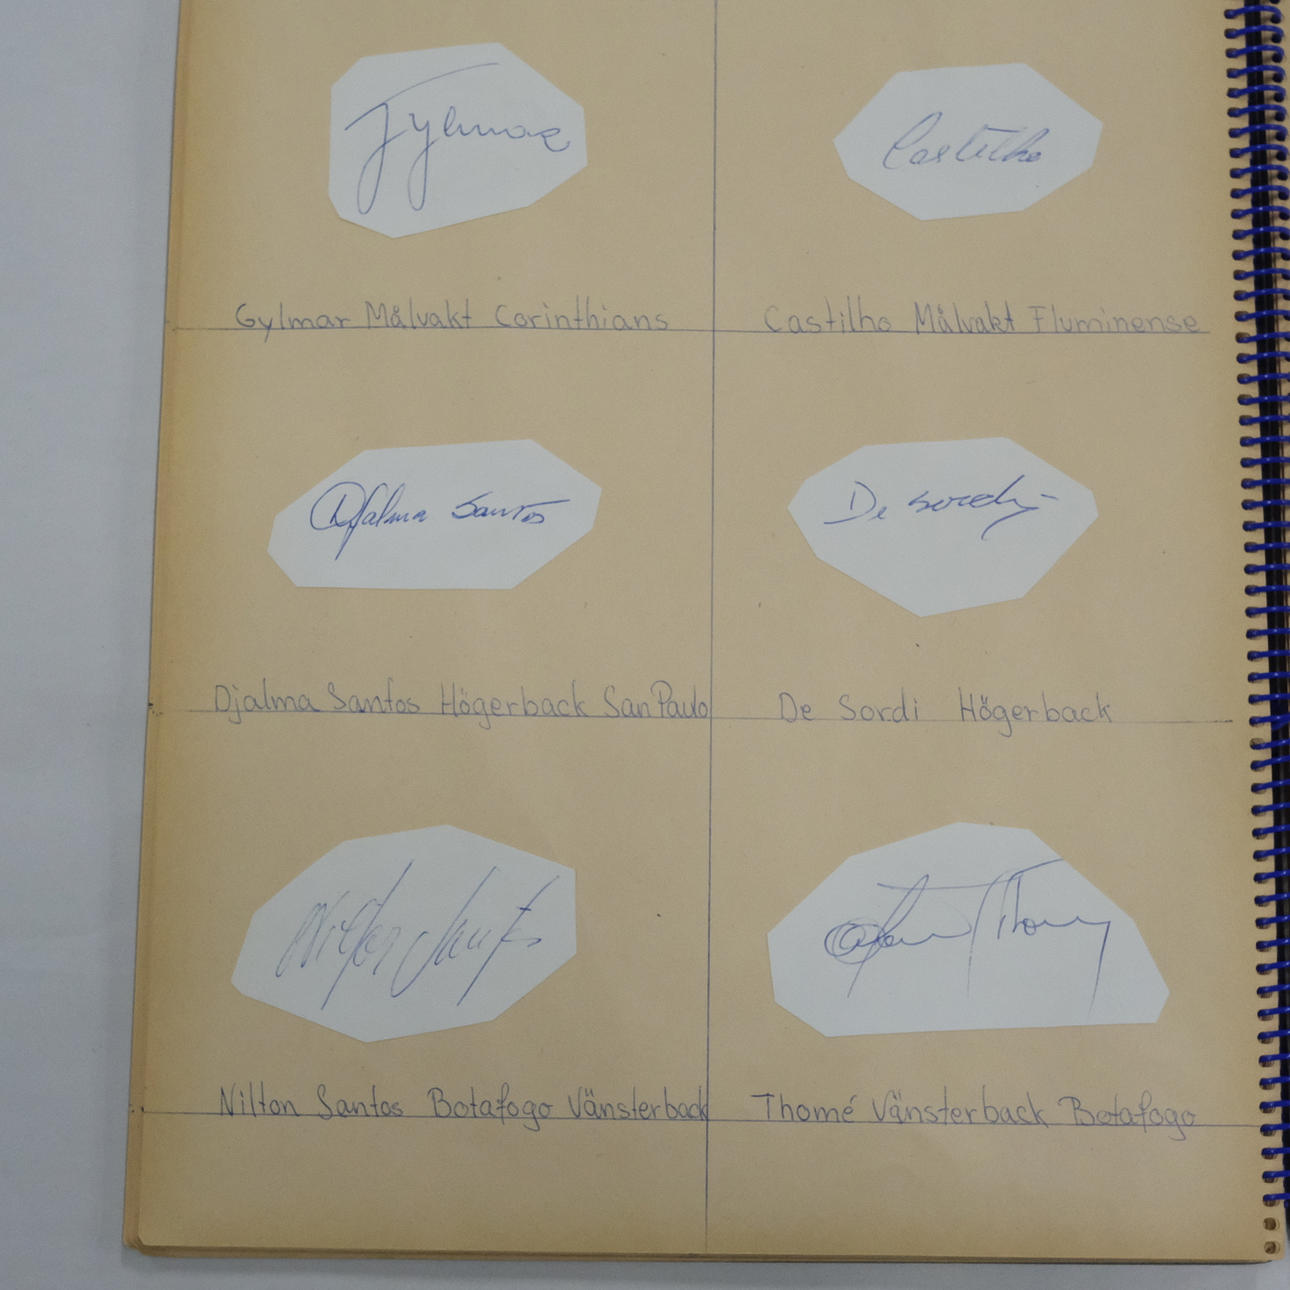 Gylmar
Castilho
Gylmar Målvakt Corinthians
Castilho Målvakt Fluminense
Djalma Santos
De Sordi
Djalma Santos Högerback San Paulo
De Sordi Högerback
Nilton Santos
Nilton Santos Botafogo Vänsterback
Thomé Vänsterback Botafogo